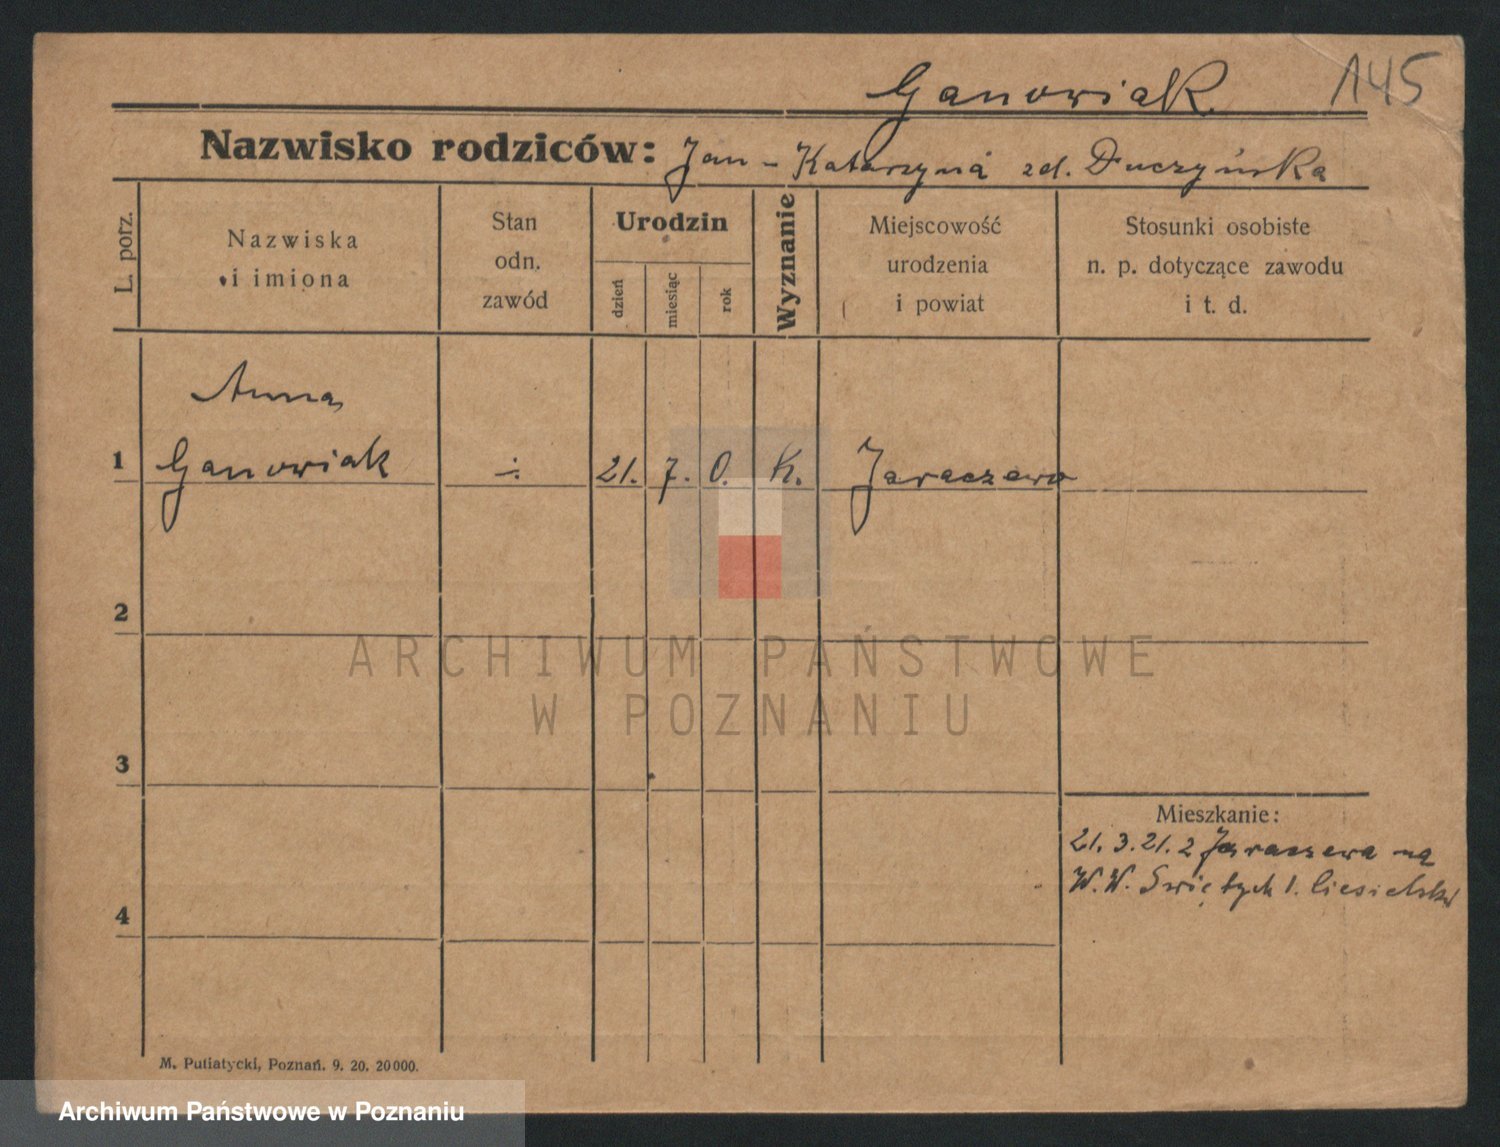 Ganowiak. 145
Nazwisko rodziców: Jan - Katarzyna zd. Duczyńska
L. porz.
Nazwiska
i imiona
Stan
odn.
zawód
Urodzin
dzień
miesiąc
rok
Wyznanie
Miejscowość
urodzenia
i powiat
Stosunki osobiste
n. p. dotyczące zawodu
i t. d.
Anna
1 Ganowiak 21. 7. 0. K. Jaraczewo
2
3
4
Mieszkanie:
21. 3. 21. z Jaraczewa na
W. W. Świętych 1.
M. Putiatycki, Poznań. 9. 20. 20 000.
ARCHIWUM PAŃSTWOWE
W POZNANIU
Archiwum Państwowe w Poznaniu